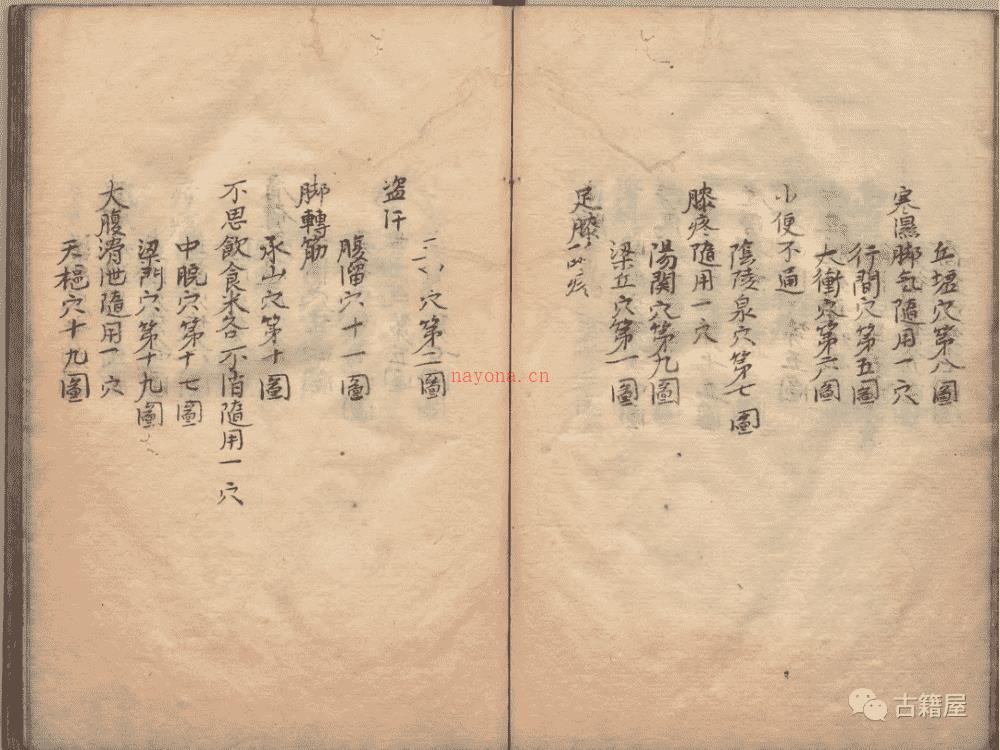 丘墟穴第八圖
寒濕脚氣隨用一穴
行間穴第五圖
大衝穴第六圖
小便不通
陰陵泉穴第七圖
膝疼隨用一穴
陽関穴第九圖
梁丘穴第一圖
足膝疼
穴第二圖
盗汗
腹留穴十一圖
脚轉筋
承山穴第十圖
不思飲食米谷不消隨用一穴
中脘穴第十七圖
梁門穴第十九圖
大腹滑泄隨用一穴
天樞穴十九圖
nayona.cn
古籍屋